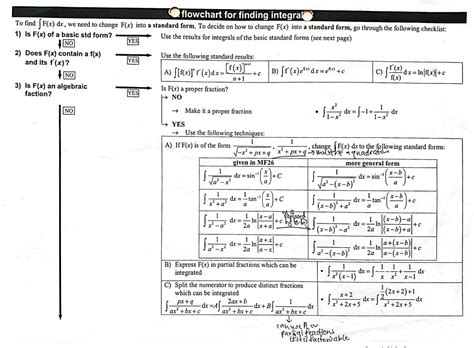 flowchart for finding integrals
To find ∫F(x) dx, we need to change F(x) into a standard form. To decide on how to change F(x) into a standard form, go through the following checklist:
1) Is F(x) of a basic std form? → YES Use the results for integrals of the basic standard forms (see next page)
NO
2) Does F(x) contain a f(x) and its f'(x)? → YES Use the following standard results:
A) ∫[f(x)]ⁿ f'(x) dx = [f(x)]ⁿ⁺¹/(n+1) + c B) ∫f'(x)e^f(x) dx = e^f(x) + c C) ∫f'(x)/f(x) dx = ln|f(x)| + c
NO
3) Is F(x) an algebraic faction? → YES Is F(x) a proper fraction?
NO
→ NO
→ Make it a proper fraction • ∫x²/(1-x²) dx = ∫-1 + 1/(1-x²) dx
→ YES
→ Use the following techniques:
A) If F(x) is of the form 1/√(-x² + px + q), 1/(x² + px + q), change ∫F(x) dx to the following standard forms:
→ must be a quadratic
given in MF26 more general form
∫1/√(a²-x²) dx = sin⁻¹(x/a) + C ∫1/√(a²-(x-b)²) dx = sin⁻¹((x-b)/a) + c
∫1/(x²+a²) dx = 1/a tan⁻¹(x/a) + C ∫1/((x-b)²+a²) dx = 1/a tan⁻¹((x-b)/a) + c
∫1/(x²-a²) dx = 1/2a ln|(x-a)/(x+a)| + c ∫1/((x-b)²-a²) dx = 1/2a ln|((x-b)-a)/((x-b)+a)| + c
∫1/(a²-x²) dx = 1/2a ln|(a+x)/(a-x)| + c ∫1/(a²-(x-b)²) dx = 1/2a ln|(a+(x-b))/(a-(x-b))| + c
B) Express F(x) in partial fractions which can be integrated • ∫1/(x²(x-1)) dx = ∫-1/x - 1/x² + 1/(x-1) dx
C) Split the numerator to produce distinct fractions which can be integrated
∫(px+q)/(ax²+bx+c) dx = A∫(2ax+b)/(ax²+bx+c) dx + B∫1/(ax²+bx+c) dx • ∫(x+2)/(x²+2x+5) dx = ∫(½(2x+2)+1)/(x²+2x+5) dx
can use B or
partial fractions
if it is factorisable